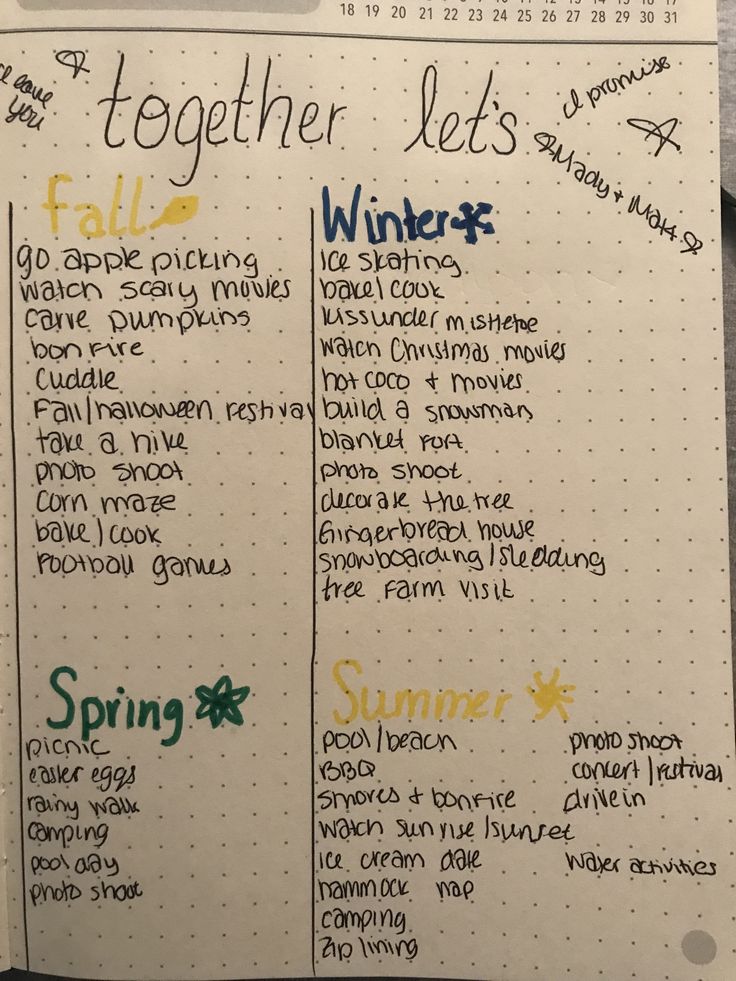 18 19 20 21 22 23 24 25 26 27 28 29 30 31
love you
together let's
I promise
Mady + Matt
Fall
go apple picking
watch scary movies
carve pumpkins
bonfire
cuddle
Fall/halloween festival
take a hike
photo shoot
corn maze
bake/cook
football games
Winter
ice skating
bake/cook
kiss under mistletoe
watch Christmas movies
hot coco + movies
build a snowman
blanket fort
photo shoot
decorate the tree
Gingerbread house
snowboarding/sledding
tree farm visit
Spring
picnic
easter eggs
rainy walk
camping
pool day
photo shoot
Summer
pool/beach
BBQ
smores + bonfire
watch sunrise/sunset
ice cream date
hammock nap
camping
Zip lining
photo shoot
concert/festival
drive in
water activities